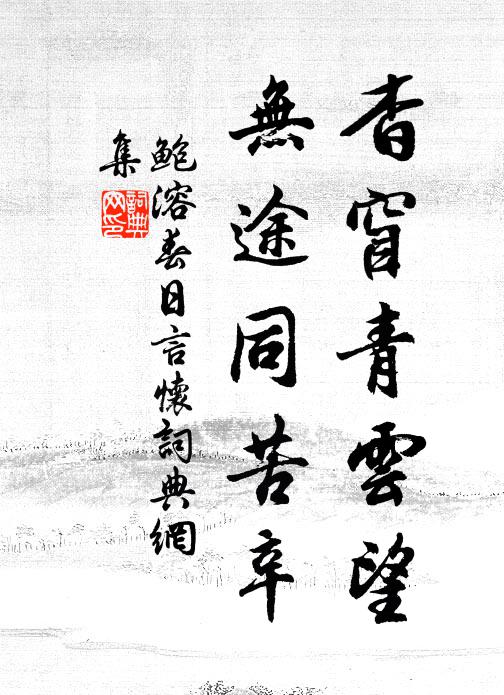 杳窅青雲望
無途同苦辛
鮑溶春日言懷詞典網
集
詞典
网印